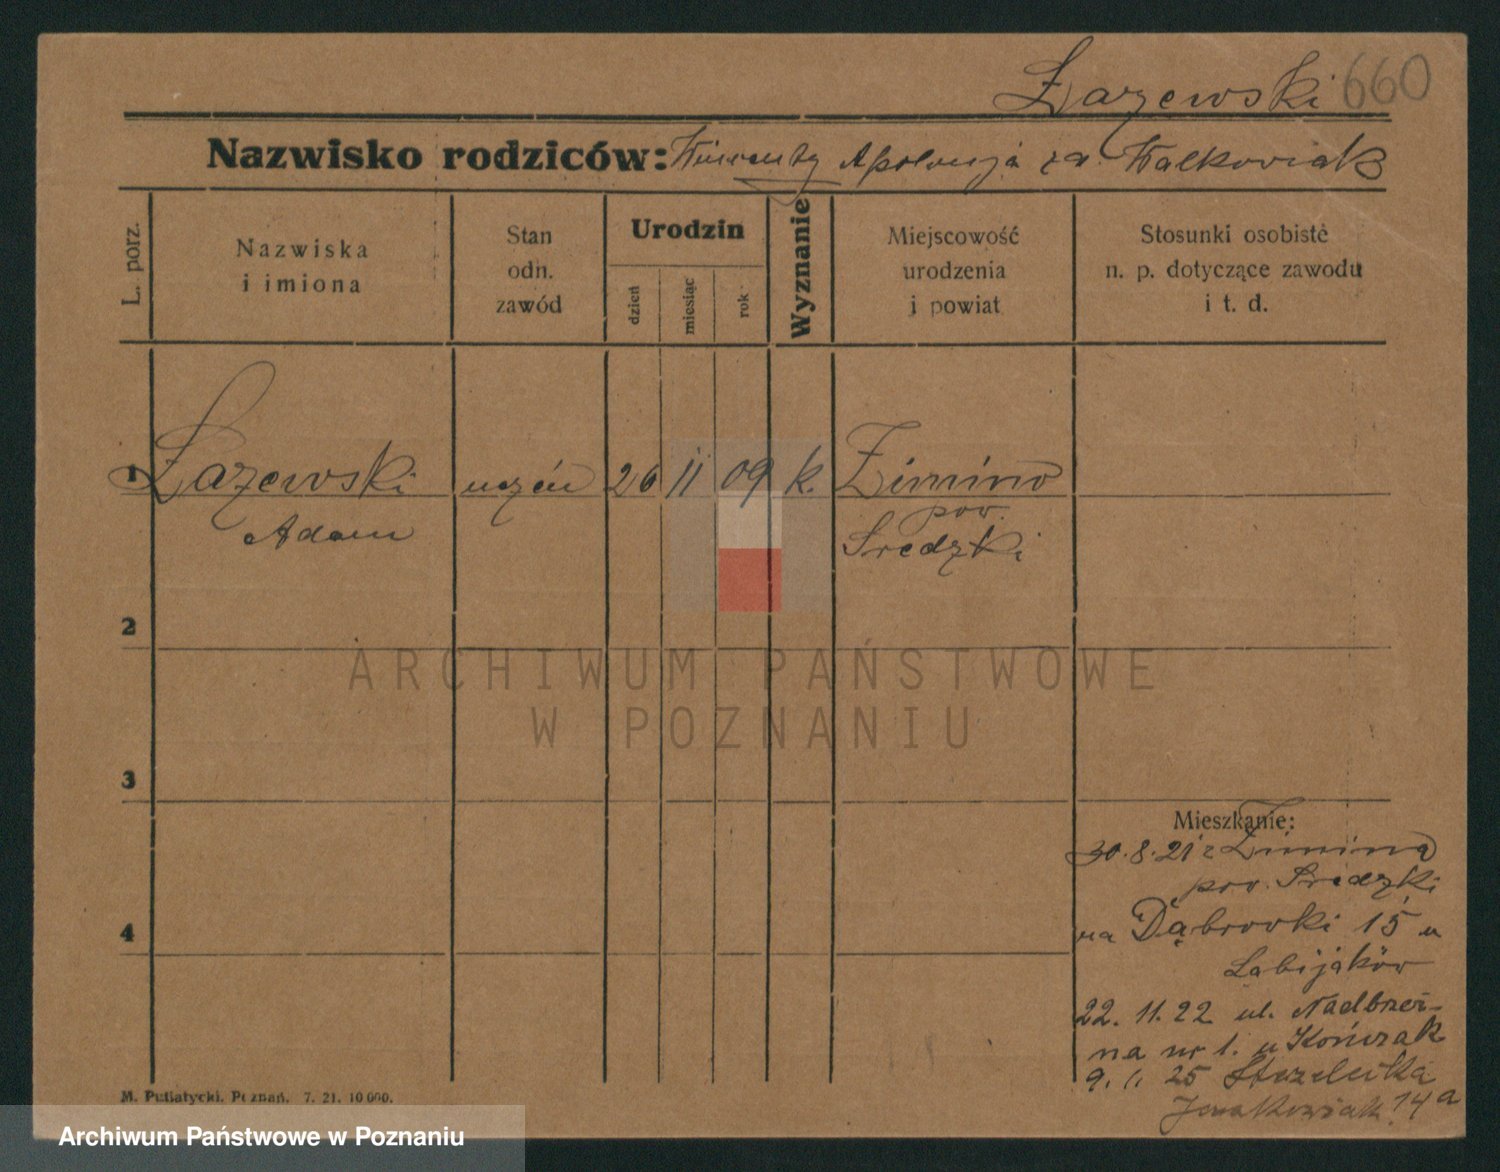 Łazewski 660
Nazwisko rodziców: Wincenty Apolonja za. Walkowiak
L. porz.
Nazwiska
i imiona
Stan
odn.
zawód
Urodzin
dzień
miesiąc
rok
Wyznanie
Miejscowość
urodzenia
i powiat
Stosunki osobiste
n. p. dotyczące zawodu
i t. d.
1 Łazewski uczeń 26 11 09 k. Zimino
pow.
Adam Średzki
2
ARCHIWUM PAŃSTWOWE
W POZNANIU
3
Mieszkanie:
30.8.21 z Zimina
pow. Średzki
4 na Dąbrowki 15 u
Labijaków
22. 11. 22 ul. Nadbrzeż-
na nr 1. u Kończak
9. 1. 25 Strzelecka
14a
M. Putiatycki, Poznań. 7. 21. 10 000.
Archiwum Państwowe w Poznaniu